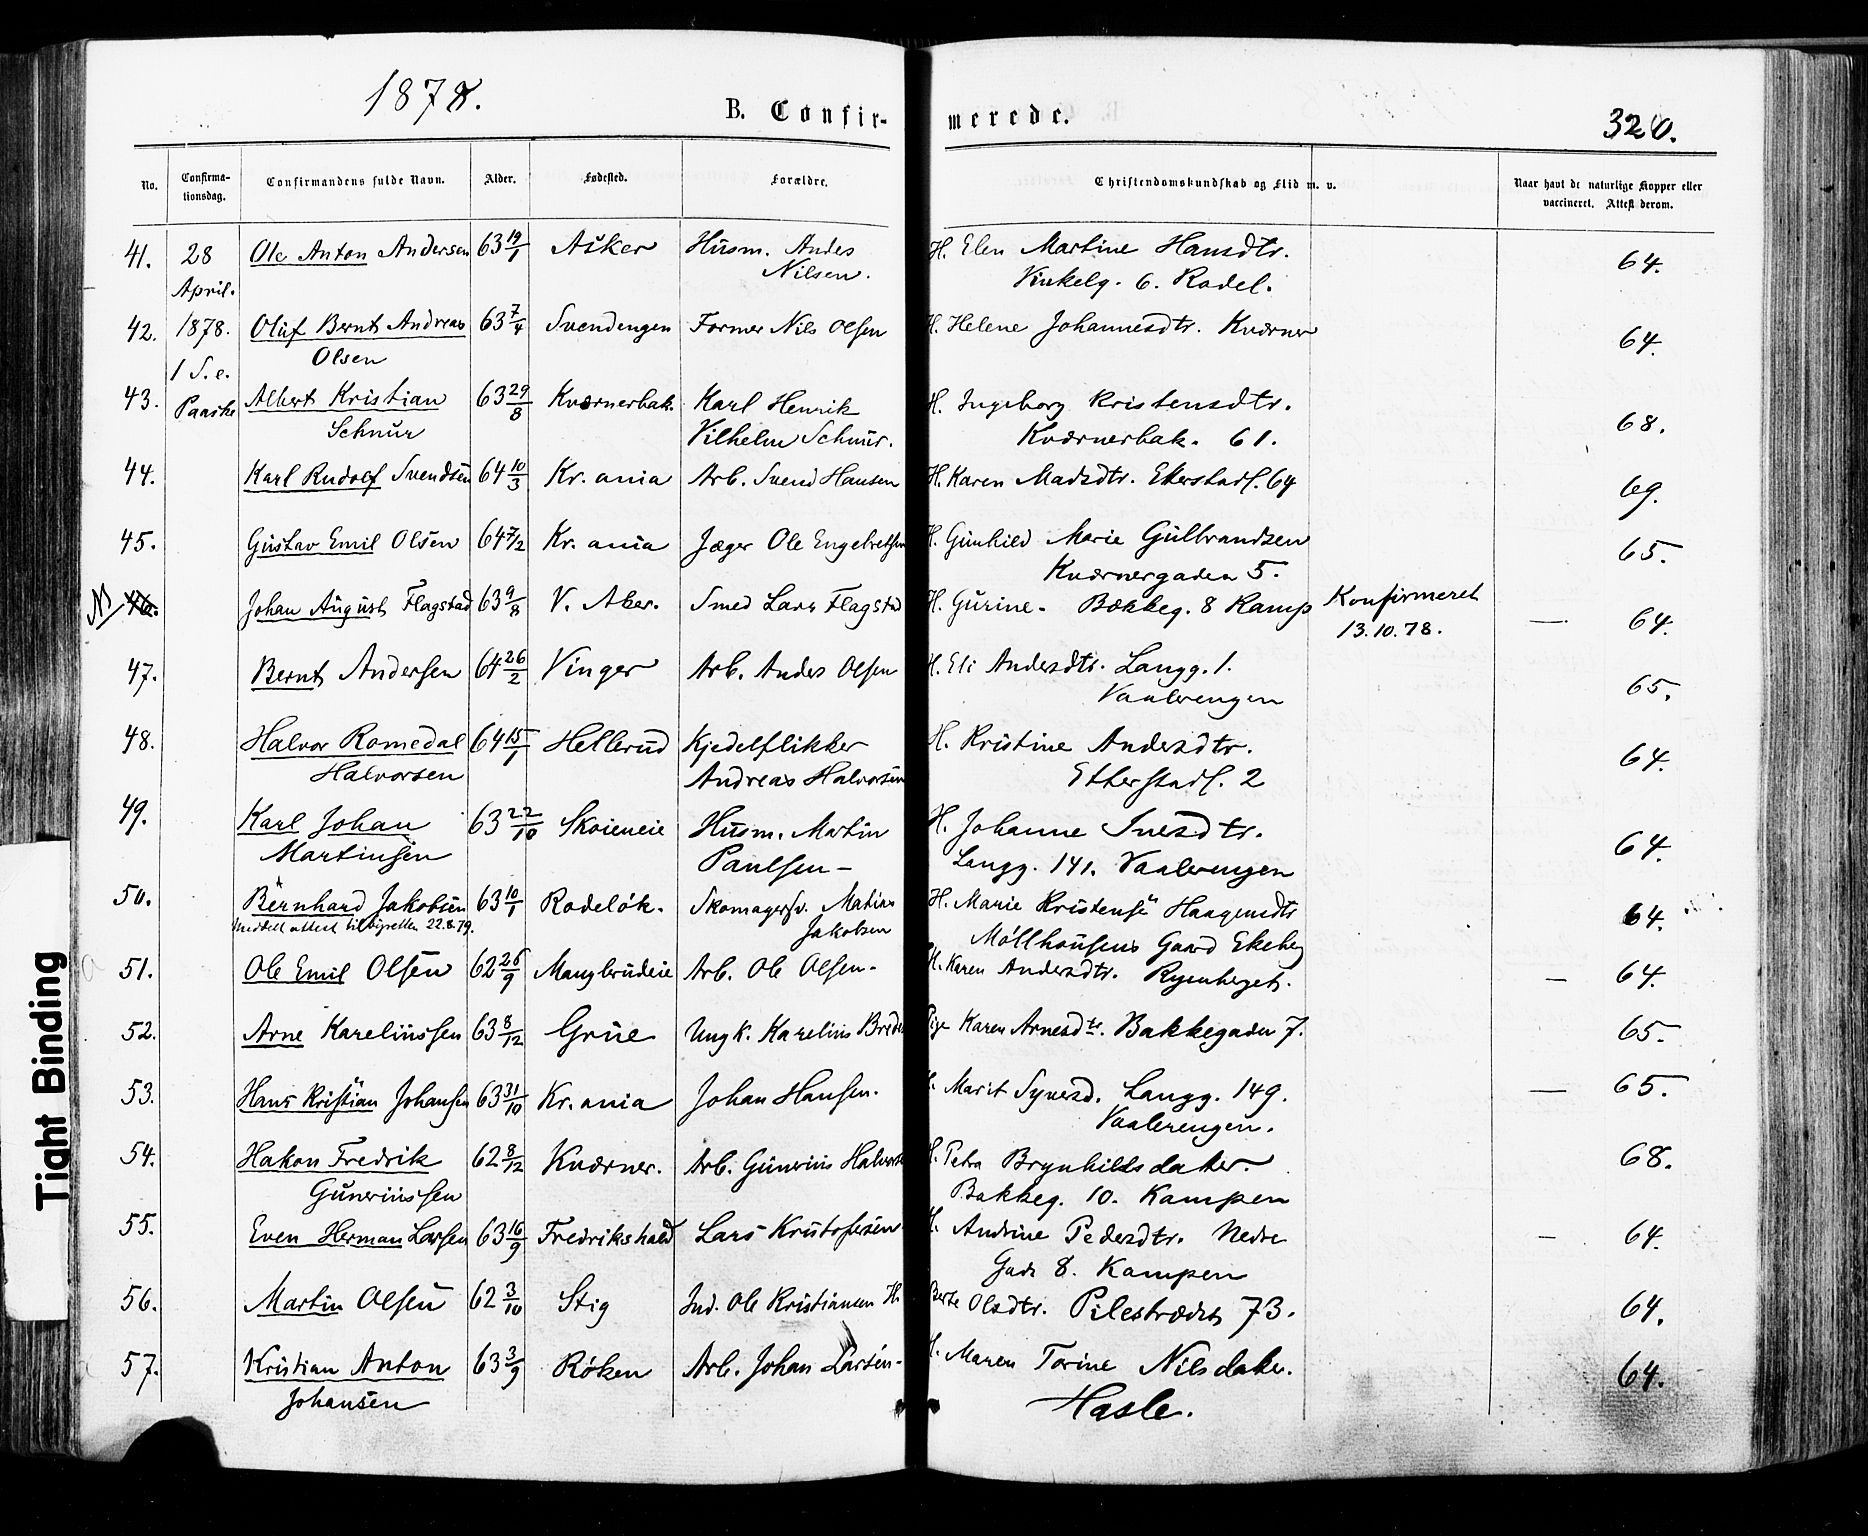 1878.
B. Confir-
merede.
320.
No.
Confirma-
tionsdag.
Confirmandens fulde Navn.
Alder.
Fødested.
Forældre.
Christendomskundskab og Flid m. v.
Naar havt de naturlige Kopper eller
vaccineret. Attest derom.
41. 28 Ole Anton Andersen 63 19/1 Asker Husm. Anders H. Elen Martine Hansdtr. 64.
April. Nilsen. Vinkelg. 6. Rodel.
42. 1878. Oluf Bernt Andreas 63 7/4 Svendengen Former Nils Olsen H. Helene Johannesdtr. Kværner 64.
1 S. e. Olsen
43. Paaske Albert Kristian 63 29/8 Kværnerbak. Karl Henrik H. Ingeborg Kristensdtr. 68.
Schnur Vilhelm Schnur. Kværnerbak. 61.
44. Karl Rudolf Svendsen 64 10/3 Kr. ania Arb. Svend Hansen H. Karen Madsdtr. Etterstadf. 64 69.
45. Gustav Emil Olsen 64 7/2 Kr. ania Jæger Ole Engebretsen H. Gunhild Marie Gulbrandsen 65.
Kværnergaden 5.
46. Johan August Flagstad 63 9/8 V. Aker. Smed Lars Flagstad H. Gurine. Bækkeg. 8 Kamp Konfirmeret — 64.
13.10.78.
47. Bernt Andersen 64 26/2 Vinger Arb. Anders Olsen H. Eli Andersdtr. Langg. 1. 65.
Vaalerengen
48. Halvor Romedal 64 15/1 Hellerud Kjedelflikker H. Kristine Andersdtr. 64.
Halvorsen Andreas Halvorsen Etterstadf. 2
49. Karl Johan 63 22/10 Skøieneie Husm. Martin H. Johanne Iversdtr. 64.
Martinsen Paulsen – Langg. 141. Vaalerengen
50. Bernhard Jakobsen 63 10/1 Rodeløk. Skomagersv. Matias H. Marie Kristense Haagensdtr 64.
meddelt attest til vigselen 22.8.79. Jakobsen Møllhausens Gaard Ekeberg
51. Ole Emil Olsen 62 26/9 Manglerudeie Arb. Ole Olsen. H. Karen Andersdtr. Ryenberget. — 64.
52. Arne Kareliussen 63 8/12 Grue Ungk. Karelius Brede Pige Karen Arnesdtr. Bakkegaden 7. 65.
53. Hans Kristian Johansen 63 31/10 Kr. ania Johan Hansen. H. Marit Syversd. Langg. 149. — 65.
Vaalerengen.
54. Hakon Fredrik 62 8/12 Kværner. Arb. Gunerius Halvorsen H. Petra Brynhildsdatter. 68.
Guneriussen Bakkeg. 10. Kampen
55. Even Herman Larsen 63 16/9 Fredrikshald Lars Kristofersen H. Andrine Pedersdtr. Nedre – 64.
Gade 8. Kampen
56. Martin Olsen 62 3/10 Stig Ind. Ole Kristiansen H. Berte Olsdtr. Pilestrædet 73. 64.
57. Kristian Anton 63 3/9 Røken Arb. Johan Larsen – H. Maren Torine Nilsdatter. 64.
Johansen Hasle.
Tight Binding